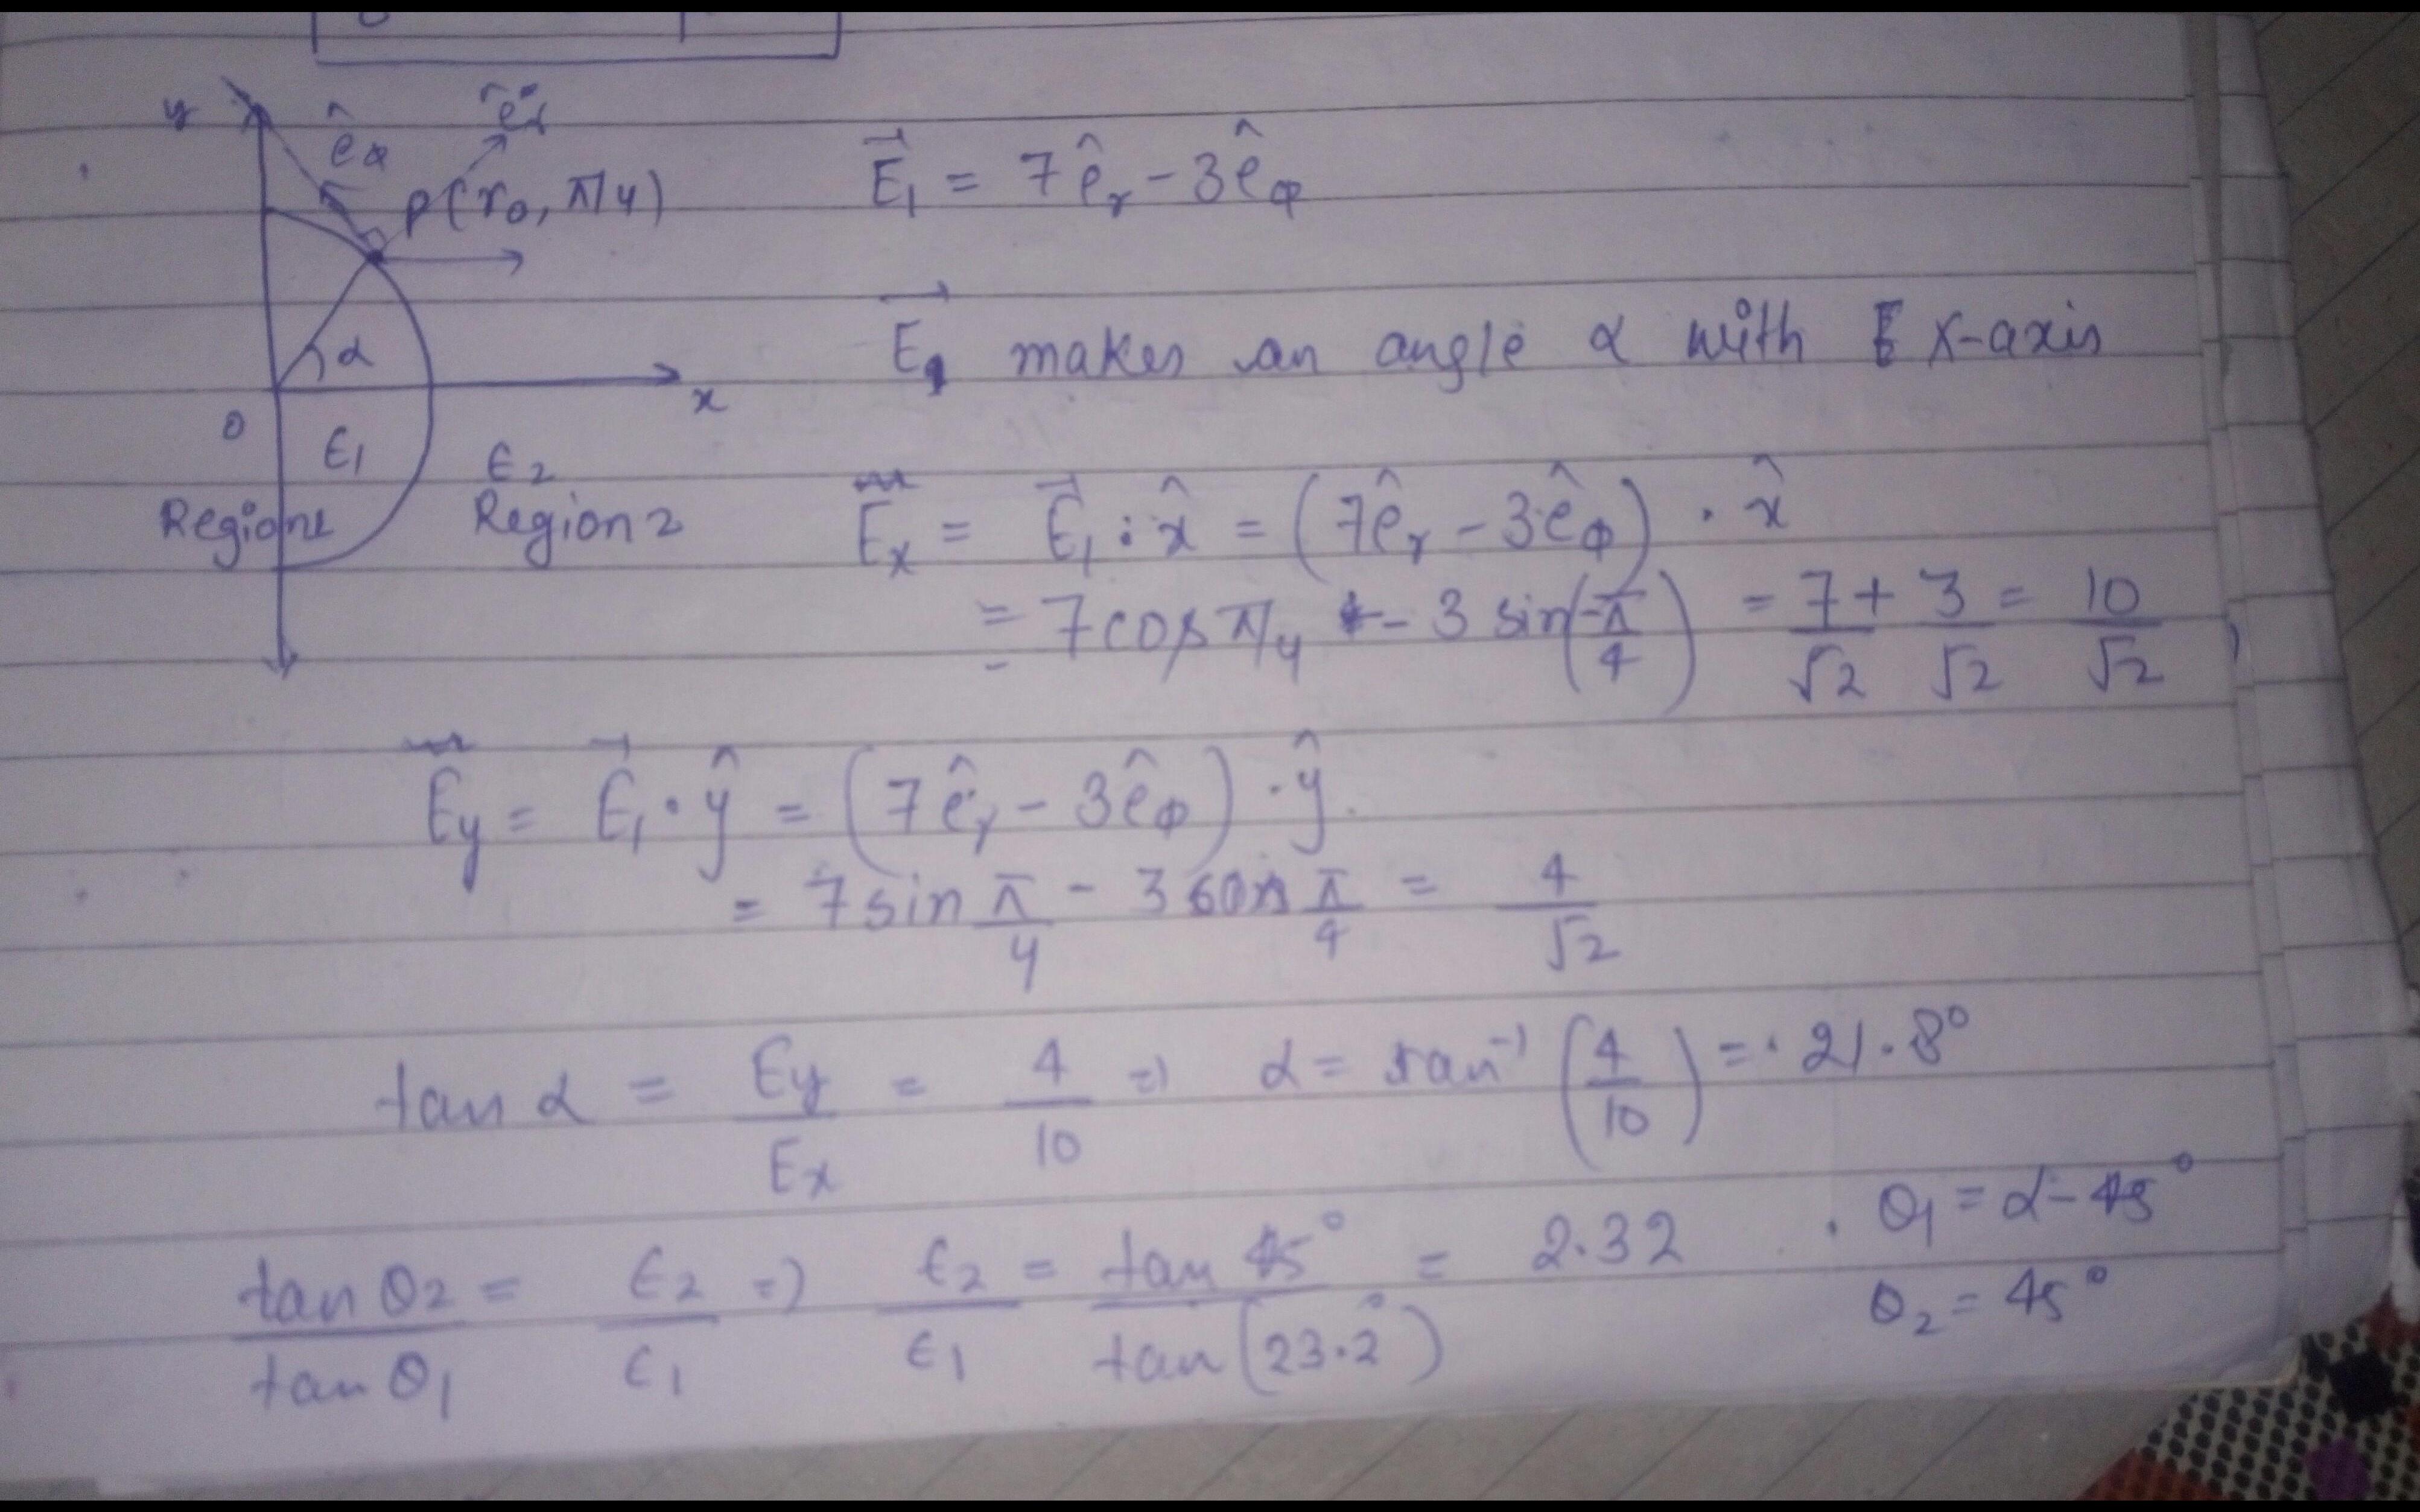 y
ê_φ
ê_r
P(r₀, π/4)
α
x
0
ϵ₁
ϵ₂
Region 1
Region 2
E⃗₁ = 7ê_r - 3ê_φ
E⃗₁ makes an angle α with X-axis
E_x = E⃗₁ · x̂ = (7ê_r - 3ê_φ) · x̂
= 7 cos π/4 - 3 sin(-π/4) = 7/√2 + 3/√2 = 10/√2 ,
E_y = E⃗₁ · ŷ = (7ê_r - 3ê_φ) · ŷ.
= 7 sin π/4 - 3 cos π/4 = 4/√2
tan α = E_y/E_x = 4/10 ⇒ α = tan⁻¹(4/10) = 21.8°
θ₁ = α - 45°
tan θ₂/tan θ₁ = ϵ₂/ϵ₁ ⇒ ϵ₂/ϵ₁ = tan 45°/tan(23.2°) = 2.32
θ₂ = 45°